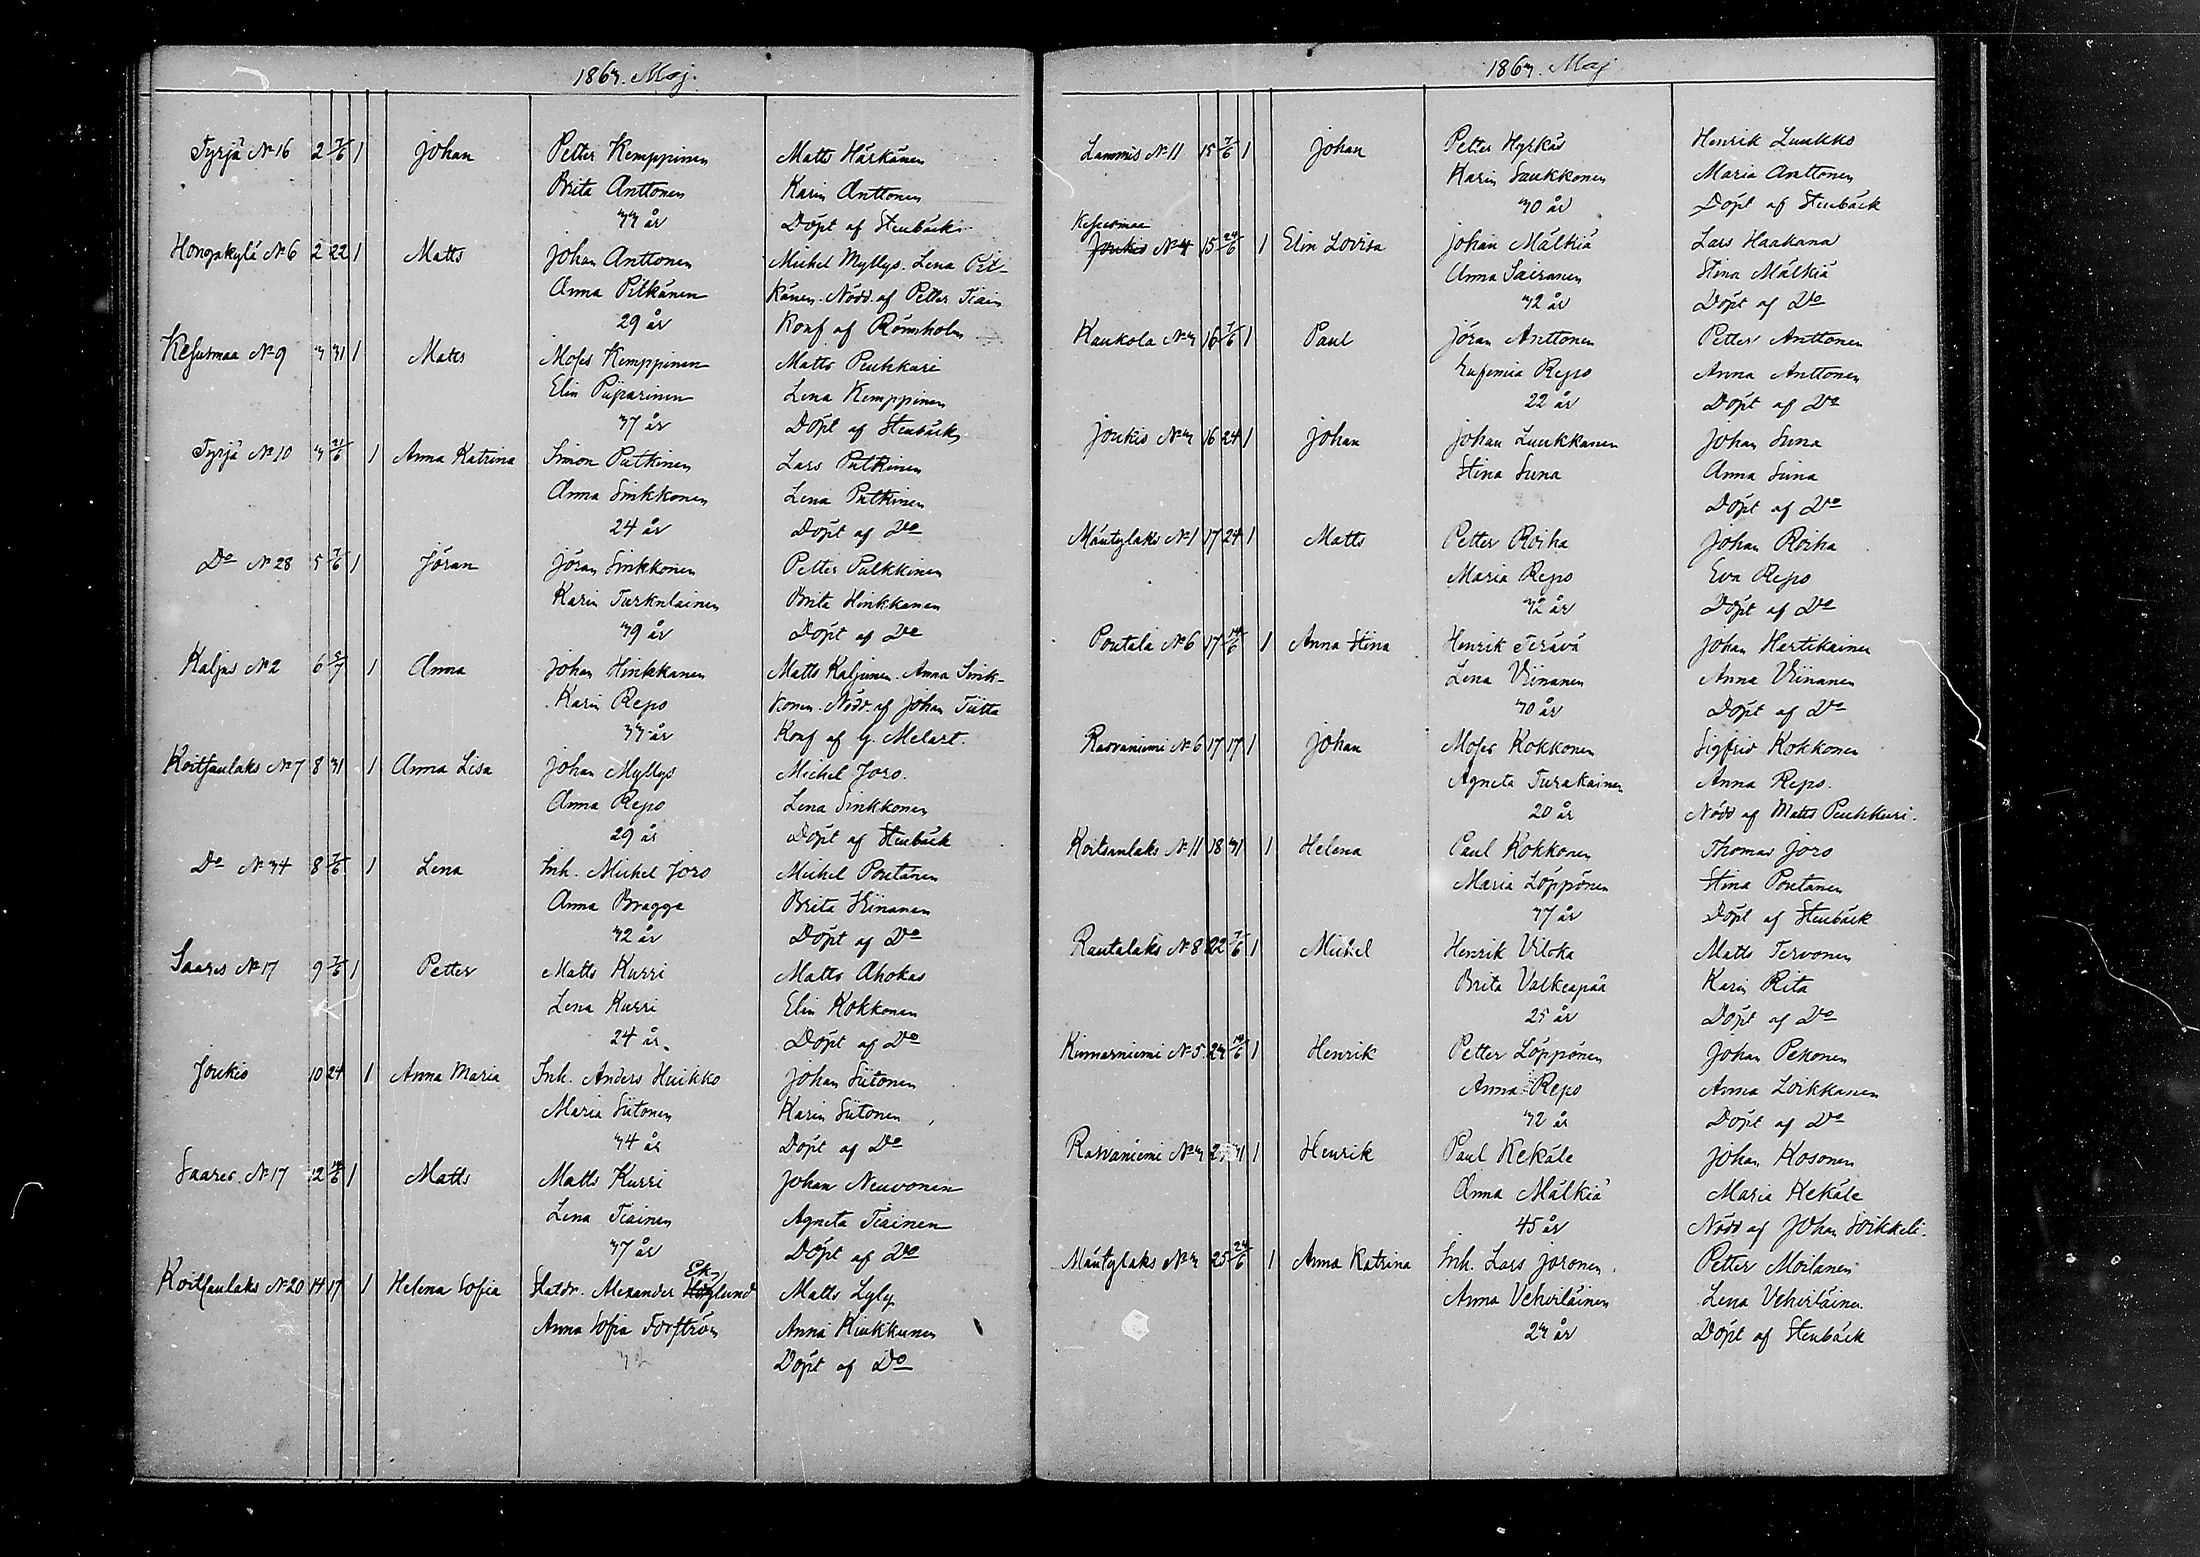 1863. Maj.
Tyrjä No 16 2 7/6 1 Johan Petter Kemppinen Matts Härkönen
Brita Anttonen Karin Anttonen
33 år Döpt af Stenbäck
Hongakylä No 6 2 22 1 Matts Johan Anttonen Michel Myllys. Lena Pit-
Anna Pitkänen känen. Nödd. af Petter Tiain
29 år Konf af Römholm
Kesusmaa No 9 3 31 1 Matts Moses Kemppinen Matts Puhkuri
Elin Piiparinen Lena Kemppinen
37 år Döpt af Stenbäck
Tyrjä No 10 3 21/6 1 Anna Katrina Simon Putkinen Lars Putkinen
Anna Sinkkonen Lena Putkinen
24 år Döpt af Do
Do No 28 5 7/6 1 Jöran Jöran Sinkkonen Petter Pulkkinen
Karin Turkulainen Brita Hinkkanen
39 år Döpt af Do
Kaljus No 2 6 5/7 1 Anna Johan Hinkkanen Matts Kaljunen. Anna Sink-
Karin Repo konen. Nödd. af Johan Tiitta
33 år Konf af G. Melart.
Koitsanlaks No 7 8 31 1 Anna Lisa Johan Myllys Michel Joro.
Anna Repo Lena Sinkkonen
29 år Döpt af Stenbäck
Do No 34 8 7/6 1 Lena Inh. Michel Joro Michel Poutanen
Anna Bragge Brita Viinanen
32 år Döpt af Do
Saares No 17 9 7/6 1 Petter Matts Kurri Matts Ahokas
Lena Kurri Elin Kokkonen
24 år. Döpt af Do
Joukio 10 24 1 Anna Maria Inh. Anders Huikko Johan Siitonen
Maria Siitonen Karin Siitonen
34 år Döpt af Do
Saares No 17 12 14/6 1 Matts Matts Kurri Johan Neuvonen
Lena Tiainen Agneta Tiainen
37 år Döpt af Do
Ek
Koitsanlaks No 20 14 17 1 Helena Sofia Statdr. Alexander Höglund Matts Lyly
Anna Sofia Forström Anna Kiukkunen
32 Döpt af Do
1863. Maj
Lammis No 11 15 7/6 1 Johan Petter Hyrkäs Henrik Luukko
Karin Saukkonen Maria Anttonen
30 år Döpt af Stenbäck
Kesusmaa
Joukio No 4 15 24/6 1 Elin Lovisa Johan Mälkiä Lars Haakana
Anna Sairanen Stina Mälkiä
32 år Döpt af Do
Kaukola No 3 16 7/6 1 Paul Jöran Anttonen Petter Anttonen
Eufemia Repo Anna Anttonen
22 år Döpt af Do
Joukio No 3 16 24 1 Johan Johan Luukkanen Johan Suna
Stina Suna Anna Suna
Döpt af Do
Mäntylaks No 1 17 24 1 Matts Petter Roiha Johan Roiha
Maria Repo Eva Repo
32 år Döpt af Do
Poutala No 6 17 14/6 1 Anna Stina Henrik Terävä Johan Hertikainen
Lena Viinanen Anna Viinanen
30 år Döpt af Do
Rasvaniemi No 6 17 17 1 Johan Moses Kokkonen Sigfrid Kokkonen
Agneta Turakainen Anna Repo.
20 år Nödd af Matts Puhkuri.
Koitsanlaks No 11 18 31 1 Helena Paul Kokkonen Thomas Joro
Maria Löppönen Stina Poutanen
37 år Döpt af Stenbäck
Rautalaks No 8 22 7/6 1 Michel Henrik Viloka Matts Tervonen
Brita Valkeapää Karin Rita
25 år Döpt af Do
Kinnarniemi No 5 23 14/6 1 Henrik Petter Löppönen Johan Pekonen
Anna Repo Anna Loikkanen
32 år Döpt af Do
Rasvaniemi No 3 31 1 Henrik Paul Kekäle Johan Kosonen
Anna Mälkiä Maria Kekäle
45 år Nödd af Johan Soikkeli.
Mäntylaks No 3 25 24/6 1 Anna Katrina Inh. Lars Joronen. Petter Moilanen
Anna Vehviläinen Lena Vehviläinen
23 år Döpt af Stenbäck